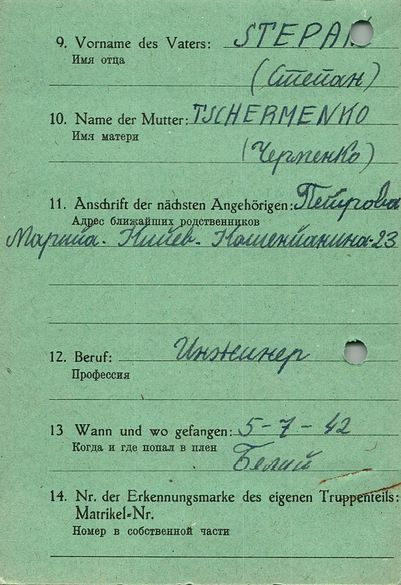 9. Vorname des Vaters: STEPAN
Имя отца
(Степан)
10. Name der Mutter: TSCHERMENKO
Имя матери
(Черменко)
11. Anschrift der nächsten Angehörigen: Петрова
Адрес ближайших родственников
Мария. Киев.
12. Beruf: Инжинер
Профессия
13 Wann und wo gefangen: 5-7-42
Когда и где попал в плен
Белий
14. Nr. der Erkennungsmarke des eigenen Truppenteils:
Matrikel-Nr.
Номер в собственной части